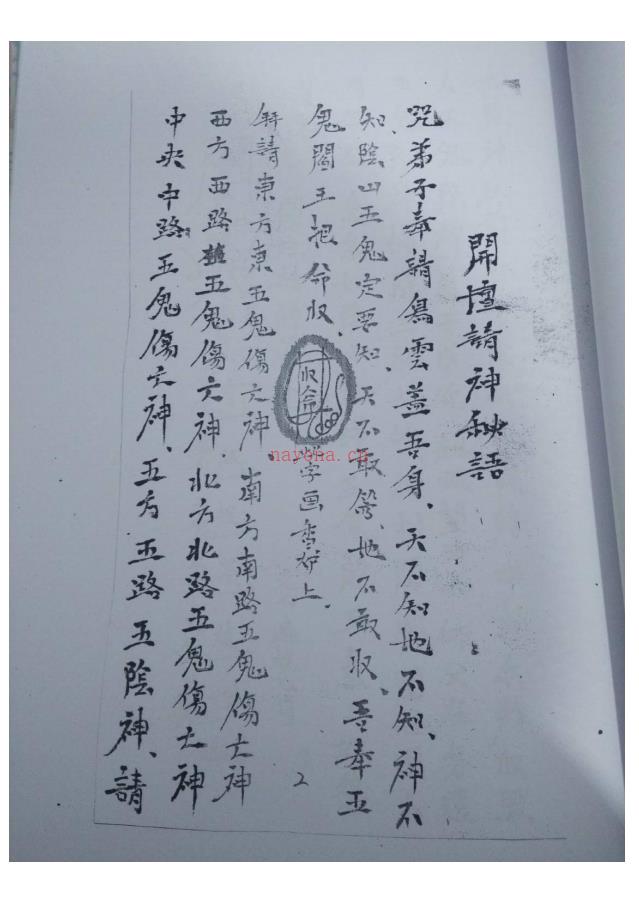 開壇請神秘語
咒弟子奉請烏雲蓋吾身、天不知地不知、神不
知、陰山五鬼定要知、天不取、地不敢收、吾奉五
鬼閻王把命收、
收命
字画香炉上.
拜請東方東五鬼傷亡神、南方南路五鬼傷亡神
西方西路五鬼傷亡神、北方北路五鬼傷亡神
中央中路五鬼傷亡神、五方五路五陰神、請
2
nayona.cn